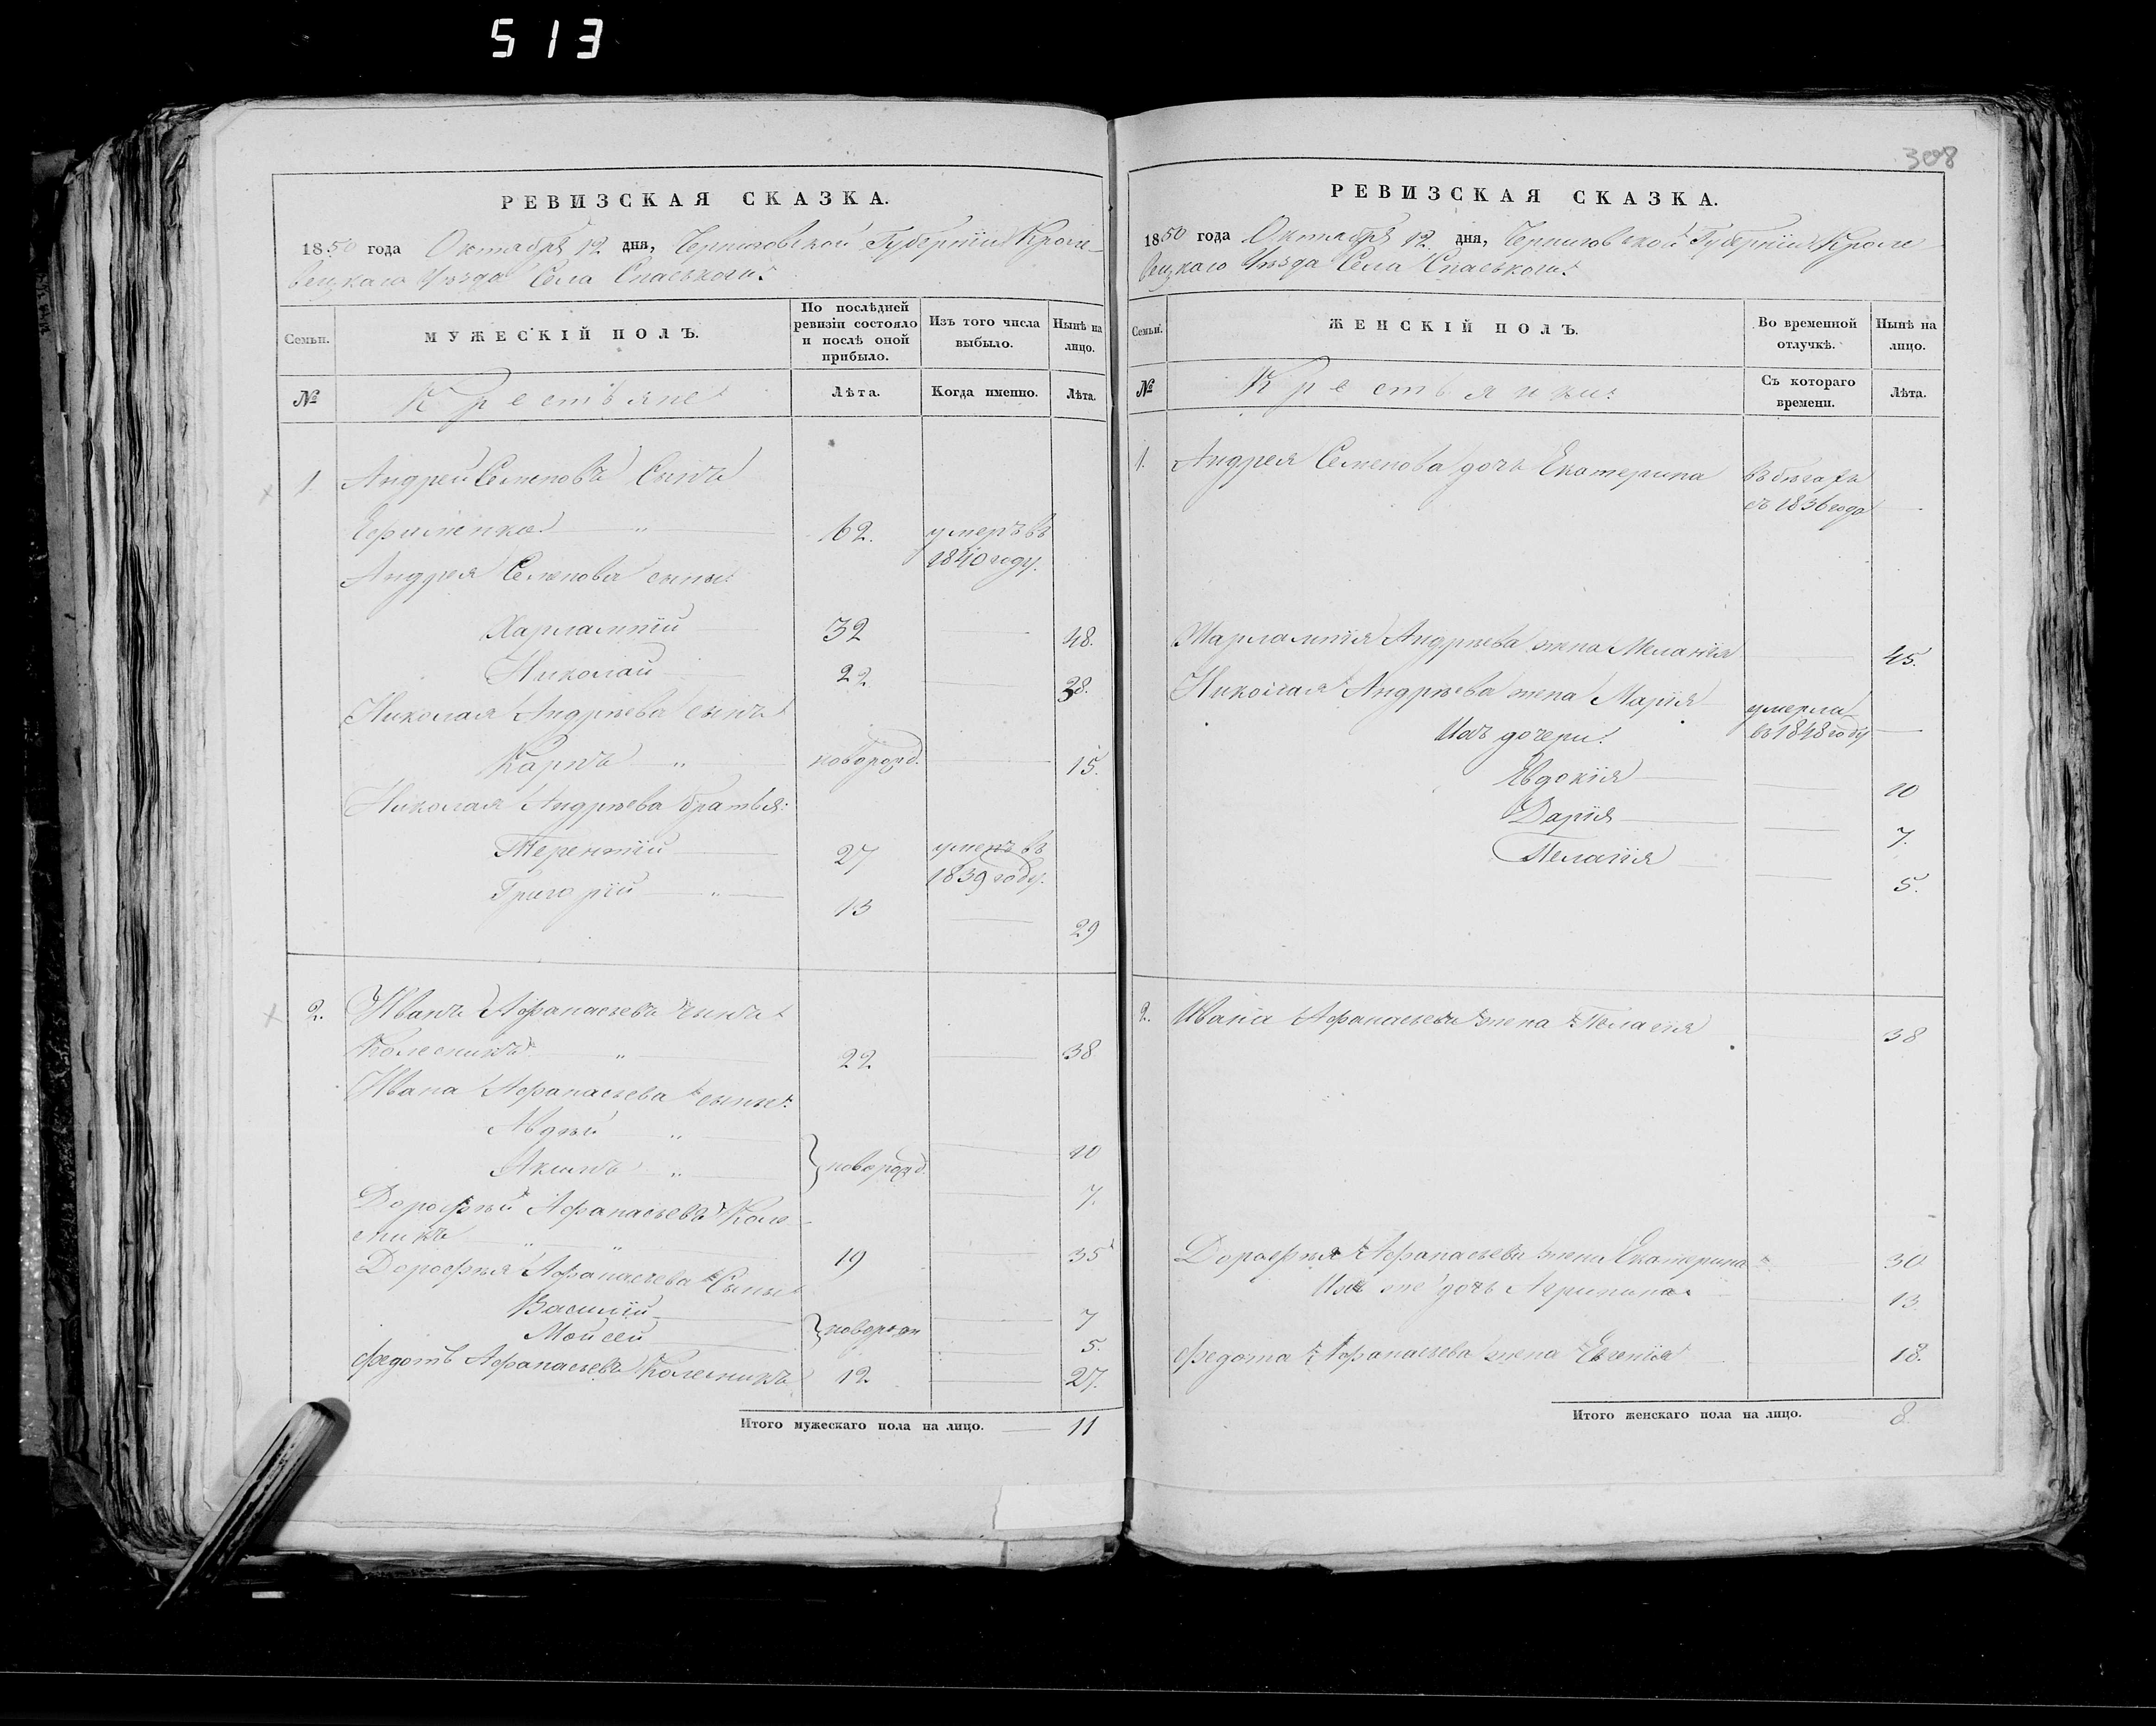 513
308
РЕВИЗСКАЯ СКАЗКА.
1850 года Октября 12 дня, Черниговской Губернiи Кроле-
вецкаго Уѣзда Села Спаського
Семьи.
МУЖЕСКIЙ ПОЛЪ.
По послѣдней ревизiи состояло и послѣ оной прибыло.
Изъ того числа выбыло.
Нынѣ на лицо.
№
Крестьяне
Лѣта.
Когда именно.
Лѣта.
1. Андрей Семеновъ Сынъ
Ефименко " 62. умеръ въ
1840 году.
Андрея Семенова сыны:
Харлампiй 32 48.
Николай 22 38.
Николая Андрѣева сынъ
Карпъ " новорожд. 15.
Николая Андрѣева братья:
Терентiй 27 умеръ въ
1839 году.
Григорiй " 13 29
2. Иванъ Афанасьевъ сынъ
Колесникъ " 22 38
Ивана Афанасьева сыны:
Авдѣй " 10
Якимъ " новорожд. 7.
Дорофѣй Афанасьевъ Коле-
сникъ " " 19 35
Дорофѣя Афанасьева Сыны
Василiй 7
Мойсей новорожд 5.
Федотъ Афанасьевъ Колесникъ 12 27.
Итого мужескаго пола на лицо. 11
РЕВИЗСКАЯ СКАЗКА.
1850 года Октября 12 дня, Черниговской Губернiи Кроле
вецкаго Уѣзда Села Спаського
Семьи.
ЖЕНСКIЙ ПОЛЪ.
Во временной отлучкѣ.
Нынѣ на лицо.
№
Крестьянки:
Съ котораго времени.
Лѣта.
1. Андрея Семенова дочь Екатерина въ бѣгахъ
съ 1836 года
Харлампiя Андрѣева жена Меланiя 45.
Николая Андрѣева жена Марiя умерла
въ 1848 году
Ихъ дочери:
Евдокiя 10
Дарiя 7.
Пелагiя 5.
2. Ивана Афанасьева жена Пелагiя 38
Дорофѣя Афанасьева жена Екатерина 30
Ихъ же дочь Агрипина 13.
Федота Афанасьева жена Евгенiя 18.
Итого женскаго пола на лицо. 8